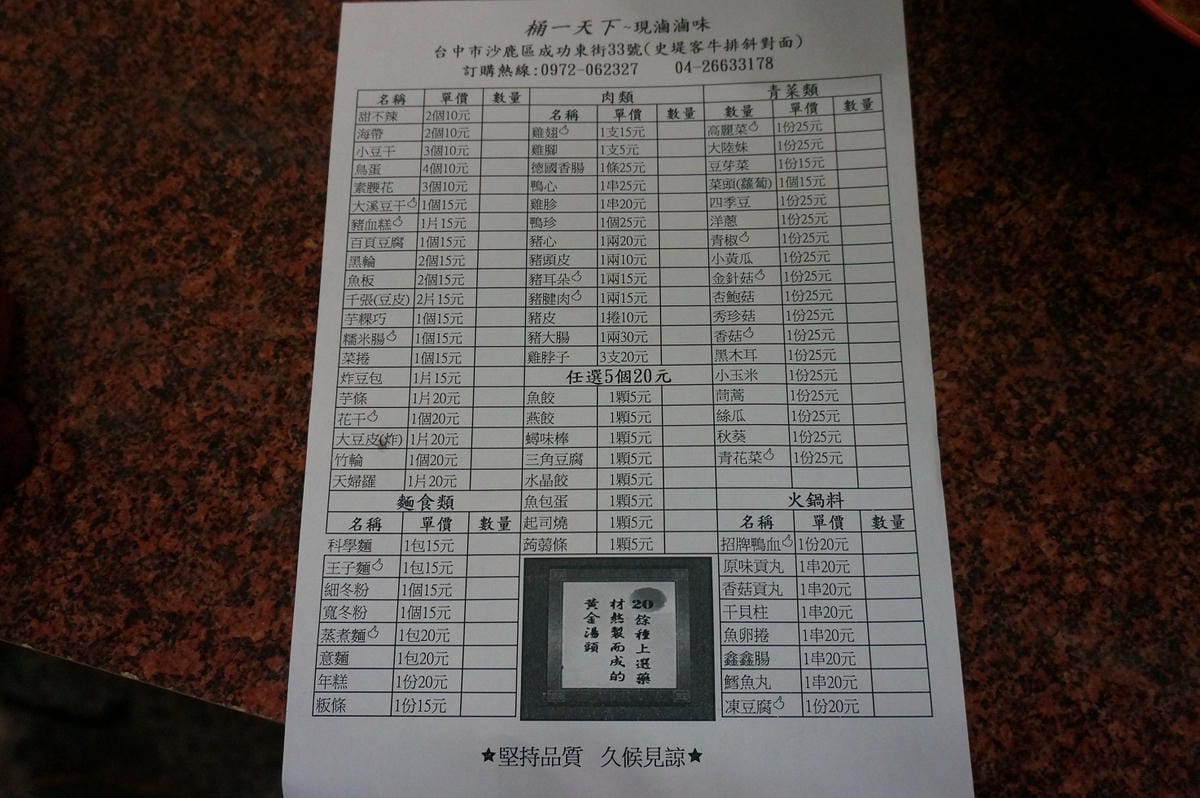 桶一天下~現滷滷味
台中市沙鹿區成功東街33號(史堤客牛排斜對面)
訂購熱線:0972-062327 04-26633178
名稱 單價 數量
甜不辣 2個10元
海帶 2個10元
小豆干 3個10元
鳥蛋 4個10元
素腰花 3個10元
大溪豆干 1個15元
豬血糕 1片15元
百頁豆腐 1個15元
黑輪 2個15元
魚板 2個15元
千張(豆皮) 2片15元
芋粿巧 1個15元
糯米腸 1個15元
菜捲 1個15元
炸豆包 1片15元
芋條 1片20元
花干 1個20元
大豆皮(炸) 1片20元
竹輪 1個20元
天婦羅 1片20元
麵食類
名稱 單價 數量
科學麵 1包15元
王子麵 1包15元
細冬粉 1個15元
寬冬粉 1個15元
蒸煮麵 1包20元
意麵 1包20元
年糕 1份20元
粄條 1份15元
肉類
名稱 單價 數量
雞翅 1支15元
雞腳 1支5元
德國香腸 1條25元
鴨心 1串25元
雞胗 1串20元
鴨珍 1個25元
豬心 1兩20元
豬頭皮 1兩10元
豬耳朵 1兩15元
豬腱肉 1兩15元
豬皮 1捲10元
豬大腸 1兩30元
雞脖子 3支20元
任選5個20元
魚餃 1顆5元
燕餃 1顆5元
蟳味棒 1顆5元
三角豆腐 1顆5元
水晶餃 1顆5元
魚包蛋 1顆5元
起司燒 1顆5元
蒟蒻條 1顆5元
20餘種上選藥
材熬製而成的
黃金湯頭
青菜類
數量 單價 數量
高麗菜 1份25元
大陸妹 1份25元
豆芽菜 1份15元
菜頭(蘿蔔) 1個15元
四季豆 1份25元
洋蔥 1份25元
青椒 1份25元
小黃瓜 1份25元
金針菇 1份25元
杏鮑菇 1份25元
秀珍菇 1份25元
香菇 1份25元
黑木耳 1份25元
小玉米 1份25元
茼蒿 1份25元
絲瓜 1份25元
秋葵 1份25元
青花菜 1份25元
火鍋料
名稱 單價 數量
招牌鴨血 1份20元
原味貢丸 1串20元
香菇貢丸 1串20元
干貝柱 1串20元
魚卵捲 1串20元
鑫鑫腸 1串20元
鱈魚丸 1串20元
凍豆腐 1份20元
★堅持品質 久候見諒★